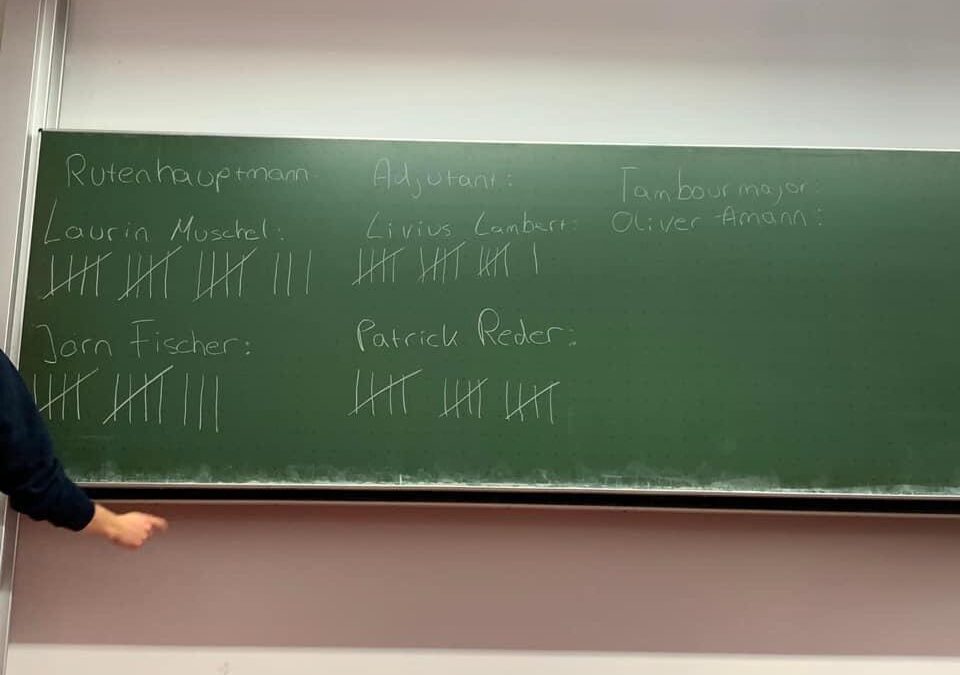 Rutenhauptmann
Laurin Muschel:
Jörn Fischer:
Adjutant:
Livius Lambert:
Patrick Reder:
Tambourmajor:
Oliver Amann: